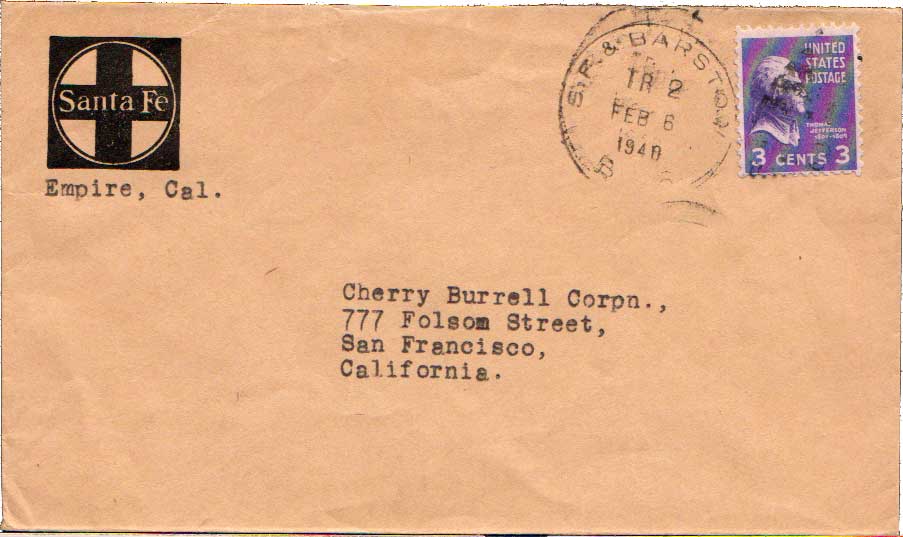 Santa Fe
Empire, Cal.
S.F. & BARSTOW
TR 2
FEB 6
1940
UNITED
STATES
POSTAGE
THOMAS
JEFFERSON
1801-1809
3 CENTS 3
Cherry Burrell Corpn.,
777 Folsom Street,
San Francisco,
California.